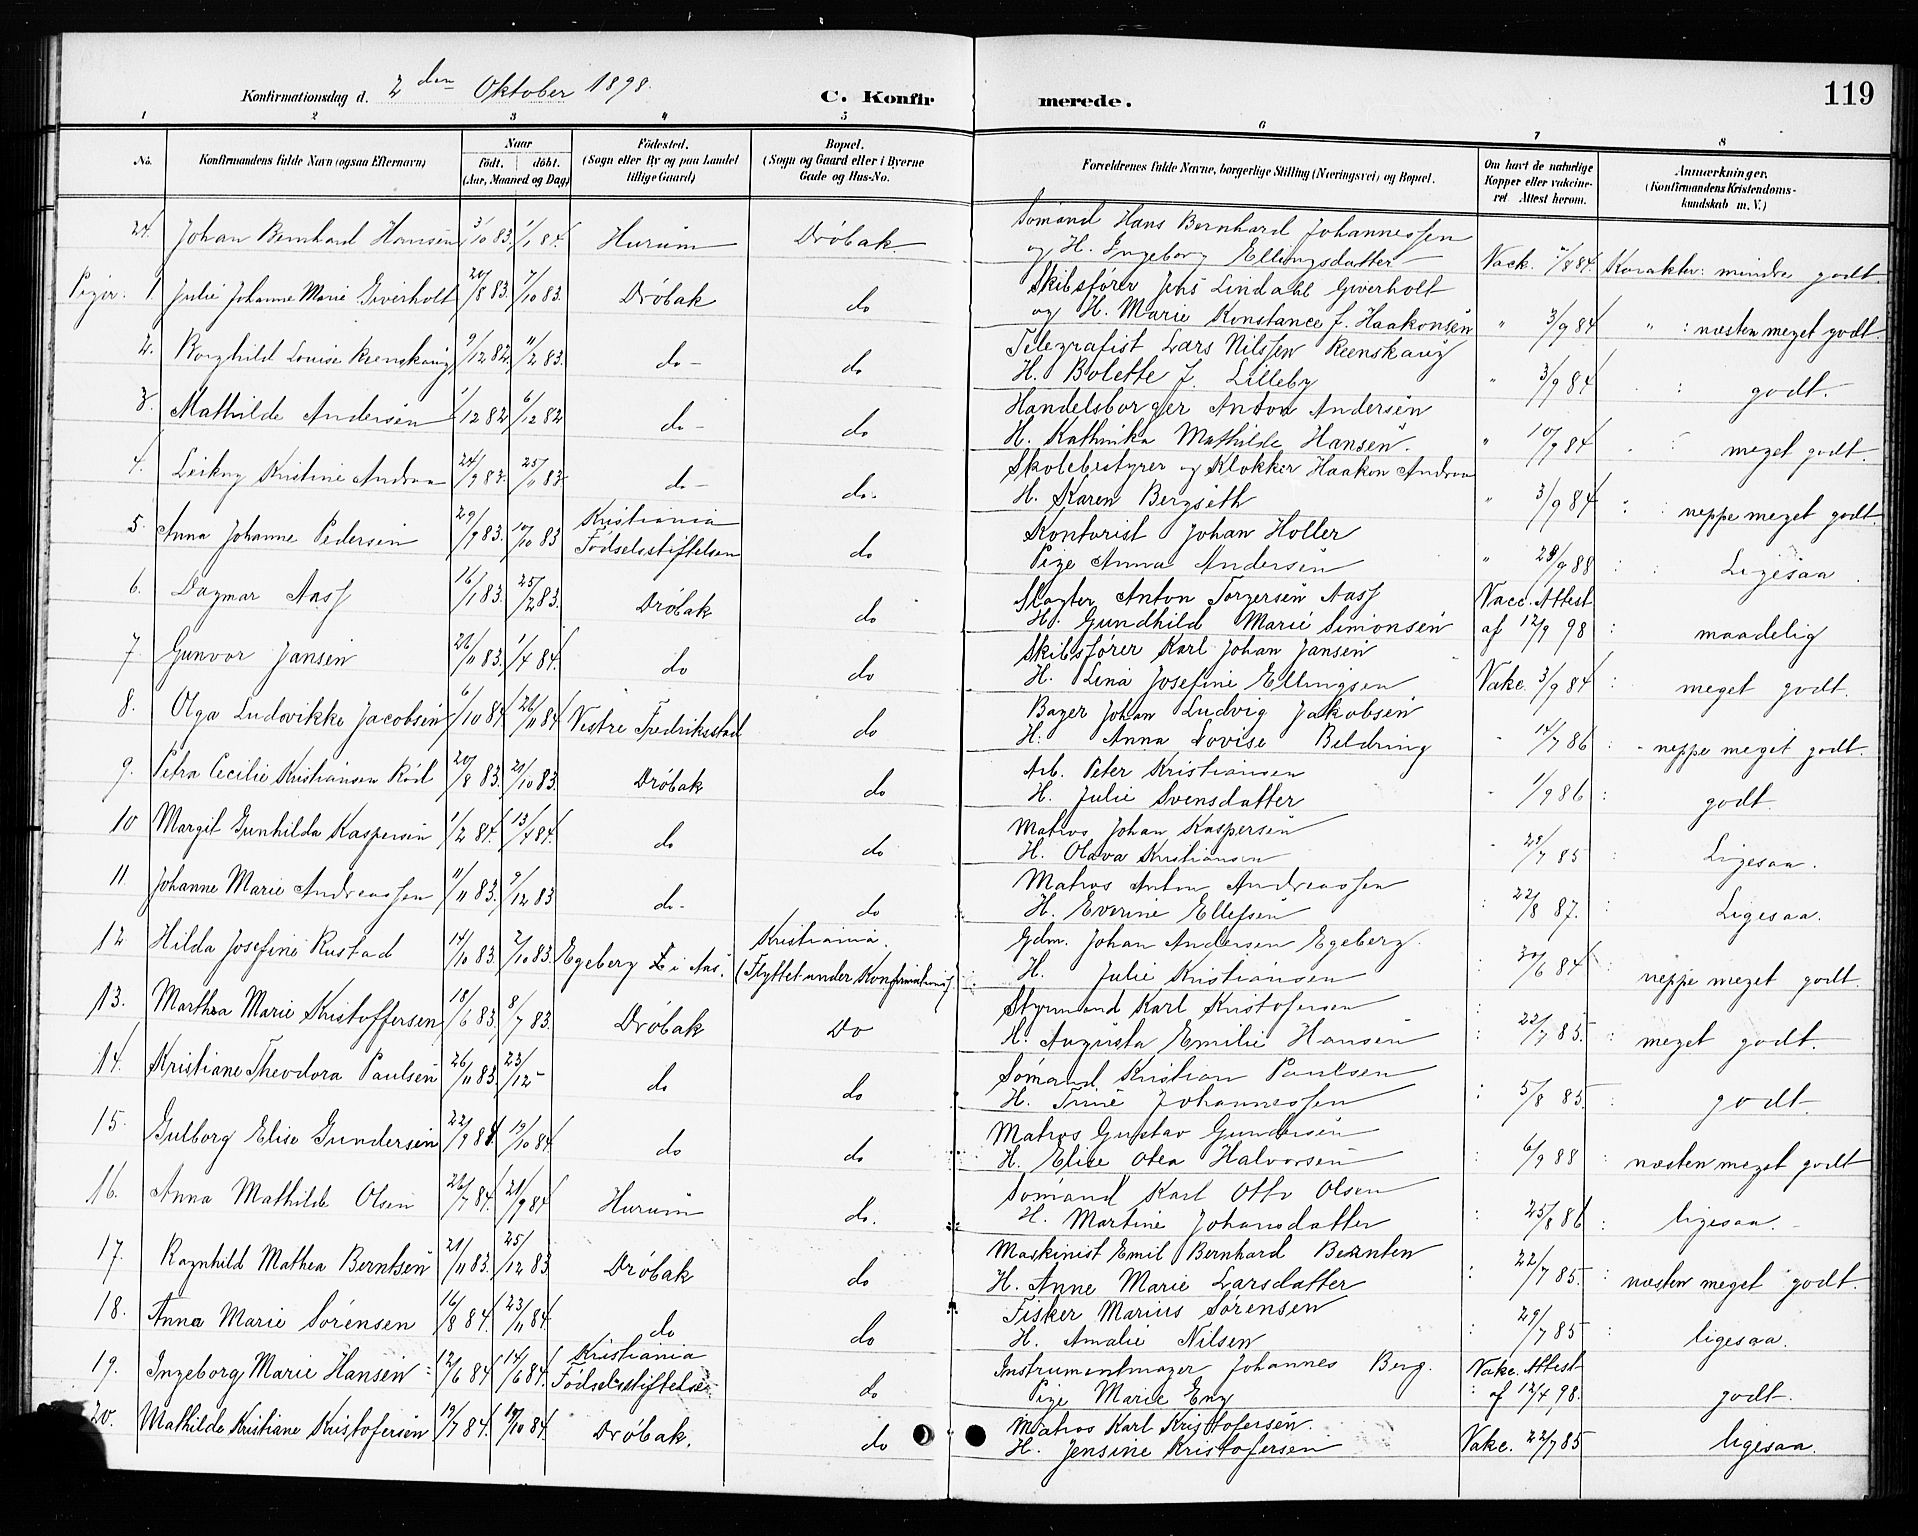 Konfirmationsdag d. 2 den Oktober 1898. C. Konfirmerede. 119
1 2 3 4 5 6 7 8
No. Konfirmandens fulde Navn (ogsaa Efternavn) Naar født. døbt. (Aar, Maaned og Dag) Fødested. (Sogn eller By og paa Landet tillige Gaard) Bopæl. (Sogn og Gaard eller i Byerne Gade og Hus-No. Forældrenes fulde Navne, borgerlige Stilling (Næringsvei) og Bopæl. Om havt de naturlige Kopper eller vakcineret Attest herom. Anmærkninger. (Konfirmandens Kristendomskundskab m. V.)
24. Johan Bernhard Hansen 3/10 83. 1/1 84. Hurum Drøbak Sømand Hans Bernhard Johannessen
og H. Ingeborg Ellingsdatter Vack. 7/8 84 Karakter: mindre godt
Piger: 1. Julie Johanne Marie Giverholt 20/8 83. 7/10 83. Drøbak do Skibsfører Jens Lindahl Giverholt
og H. Marie Konstance f. Haakonsen " 3/9 84 " : næsten meget godt.
2. Borghild Louise Reenskaug 9/12 82. 11/2 83. do do Telegrafist Lars Nilssen Reenskaug
H. Bolette f. Lilleby " 3/9 84 : godt.
3. Mathilde Andersen 1/12 82 6/12 82 do do Handelsborger Anton Andersen
H. Kathinka Mathilde Hansen. " 10/9 84 meget godt.
4. Leikny Kristine Andraa 24/9 83. 25/11 83. do do. Skolebestyrer og Klokker Haakon Andraa
H. Karen Bergseth " 3/9 84 : neppe meget godt.
5. Anna Johanne Pedersen 29/9 83. 10/10 83 Kristiania Fødselsstiftelsen do Kontorist Johan Holler
Pige Anna Andersen " 28/9 88 : Ligesaa.
6. Dagmar Aass 16/1 83. 25/2 83. Drøbak do Slagter Anton Torgersen Aass
H. Gundhild Marie Simonsen Vacc. Attest af 12/9 98 : maadelig
7. Gunvor Jansen 26/11 83. 1/4 84. do do Skibsfører Karl Johan Jansen
H. Lina Josefine Ellingsen Vakc. 3/9 84 : meget godt.
8. Olga Ludovikke Jacobsen 6/10 84 26/11 84 Vestre Fredriksstad do Bager Johan Ludvig Jakobsen
H: Anna Lovise Beldring 14/7 86 : neppe meget godt.
9. Petra Cecilie Kristiansen Rød 20/8 83. 21/10 83. Drøbak do Arb. Peter Kristiansen
H. Julie Svensdatter 1/9 86 : godt.
10 Margit Gunhilda Kaspersen 1/2 84. 13/4 84. do do Matros Johan Kaspersen
H. Olava Kristiansen 29/7 85 : Ligesaa.
11. Johanne Marie Andreassen 11/11 83. 9/12 83 do do Matros Anton Andreassen
H. Everine Ellefsen : 22/8 87. : Ligesaa.
12 Hilda Josefine Rustad 14/10 83 2/10 83. Egeberg i Aas. Kristiania. (Flyttet under Konfirmationsf Gdm. Johan Andersen Egeberg.
H. Julie Kristiansen : 30/6 84 neppe meget godt.
13. Marthea Marie Kristoffersen 18/6 83. 8/7 83. Drøbak Do Styrmand Karl Kristofersen
H. Augusta Emilie Hansen : 22/7 85. : meget godt.
14. Kristiane Theodora Paulsen 26/11 83. 23/12 do do Sømand Kristian Paulsen
H. Trine Johannessen : 5/8 85. : godt.
15. Gulborg Elise Gundersen 22/9 84 19/10 84. do do Matros Gustav Gundersen
H. Elise Olea Halvorsen : 6/9 88 : næsten meget godt
16. Anna Mathilde Olsen 26/7 84. 21/9 84 Hurum do. Sømand Karl Otto Olsen
H. Martine Johansdatter : 25/8 86 : ligesaa.
17. Ragnhild Mathea Berntsen 21/11 83. 25/12 83 Drøbak do Maskinist Emil Bernhard Bernten
H. Anne Marie Larsdatter : 22/7 85. : næsten meget godt.
18. Anna Marie Sørensen 16/8 84. 23/11 84. do do Fisker Marius Sørensen
H. Amalie Nilsen : 29/7 85 : ligesaa.
19. Ingeborg Marie Hansen 12/6 84 14/6 84. Kristiania Fødselsstiftelse do Instrumentmager Johannes Berg.
Pige Marie Eng Vakc. Attest af 12/4 98. godt.
20. Mathilde Kristiane Kristofersen 19/7 84. 19/10 84. Drøbak. do Matros Karl Kristofersen.
H. Jensine Kristofersen Vakc. 22/7 85 ligesaa.